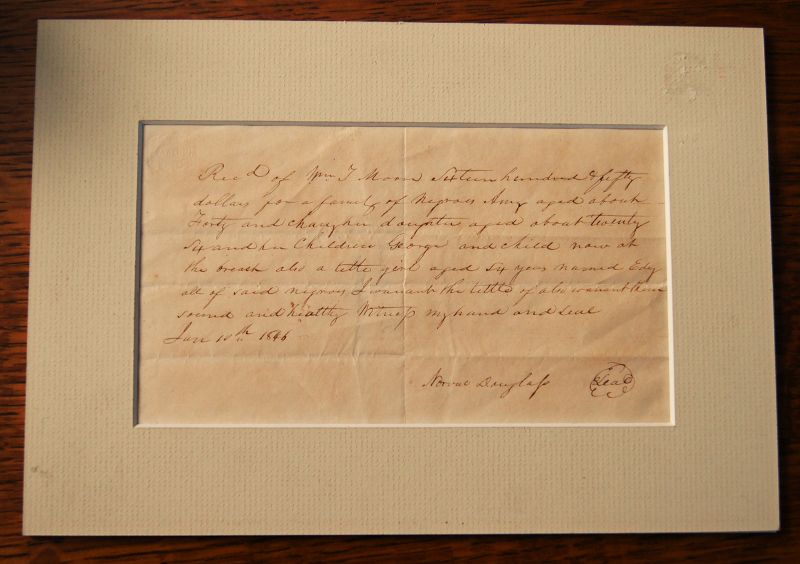 Recd of Wm T Moore Sixteen hundred & fifty
dollars for a family of Negroes Amy aged about
Forty and her daughter aged about twenty
Six and her Children George and child now at
the breast also a little girl aged Six years named Edy
all of said negroes I warrant the tittle of also warrant them
sound and healthy Witness my hand and Seal
Jan 10th 1846
Norval Douglass Seal